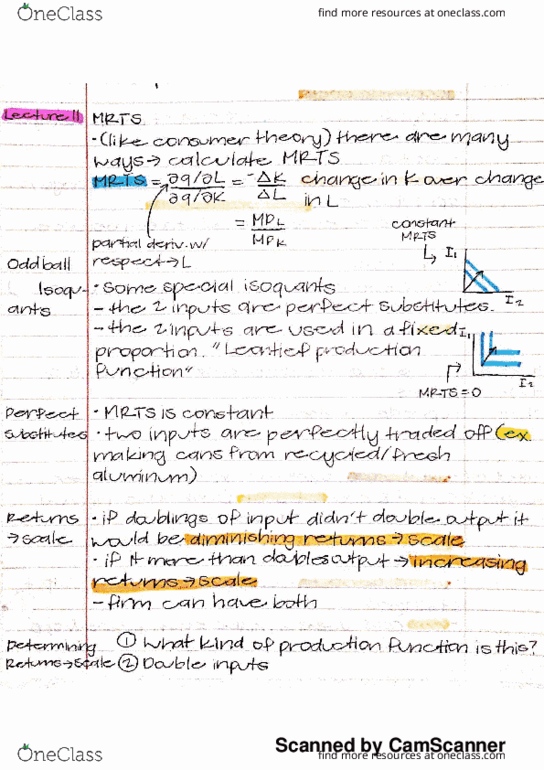 OneClass
find more resources at oneclass.com
Lecture 11
MRTS
·(like consumer theory) there are many
ways→ calculate MRTS
MRTS = ∂q/∂L = -ΔK change in K over change
∂q/∂K ΔL in L
= MPL
MPK
partial deriv. w/
respect→L
constant
MRTS
I1
I2
Oddball
Isoqu-
ants
· Some special isoquants
- the 2 inputs are perfect substitutes.
- the 2 inputs are used in a fixed
proportion. "Leontief production
function"
I1
I2
MRTS = 0
Perfect
substitutes
· MRTS is constant
· two inputs are perfectly traded off (ex.
making cans from recycled/fresh
aluminum)
Returns
→scale
· if doublings of input didn't double output it
would be diminishing returns→scale
· if it more than doubles output → increasing
returns→scale
- firm can have both
Determining
Returns→Scale
① What kind of production function is this?
② Double inputs
Scanned by CamScanner
OneClass
find more resources at oneclass.com